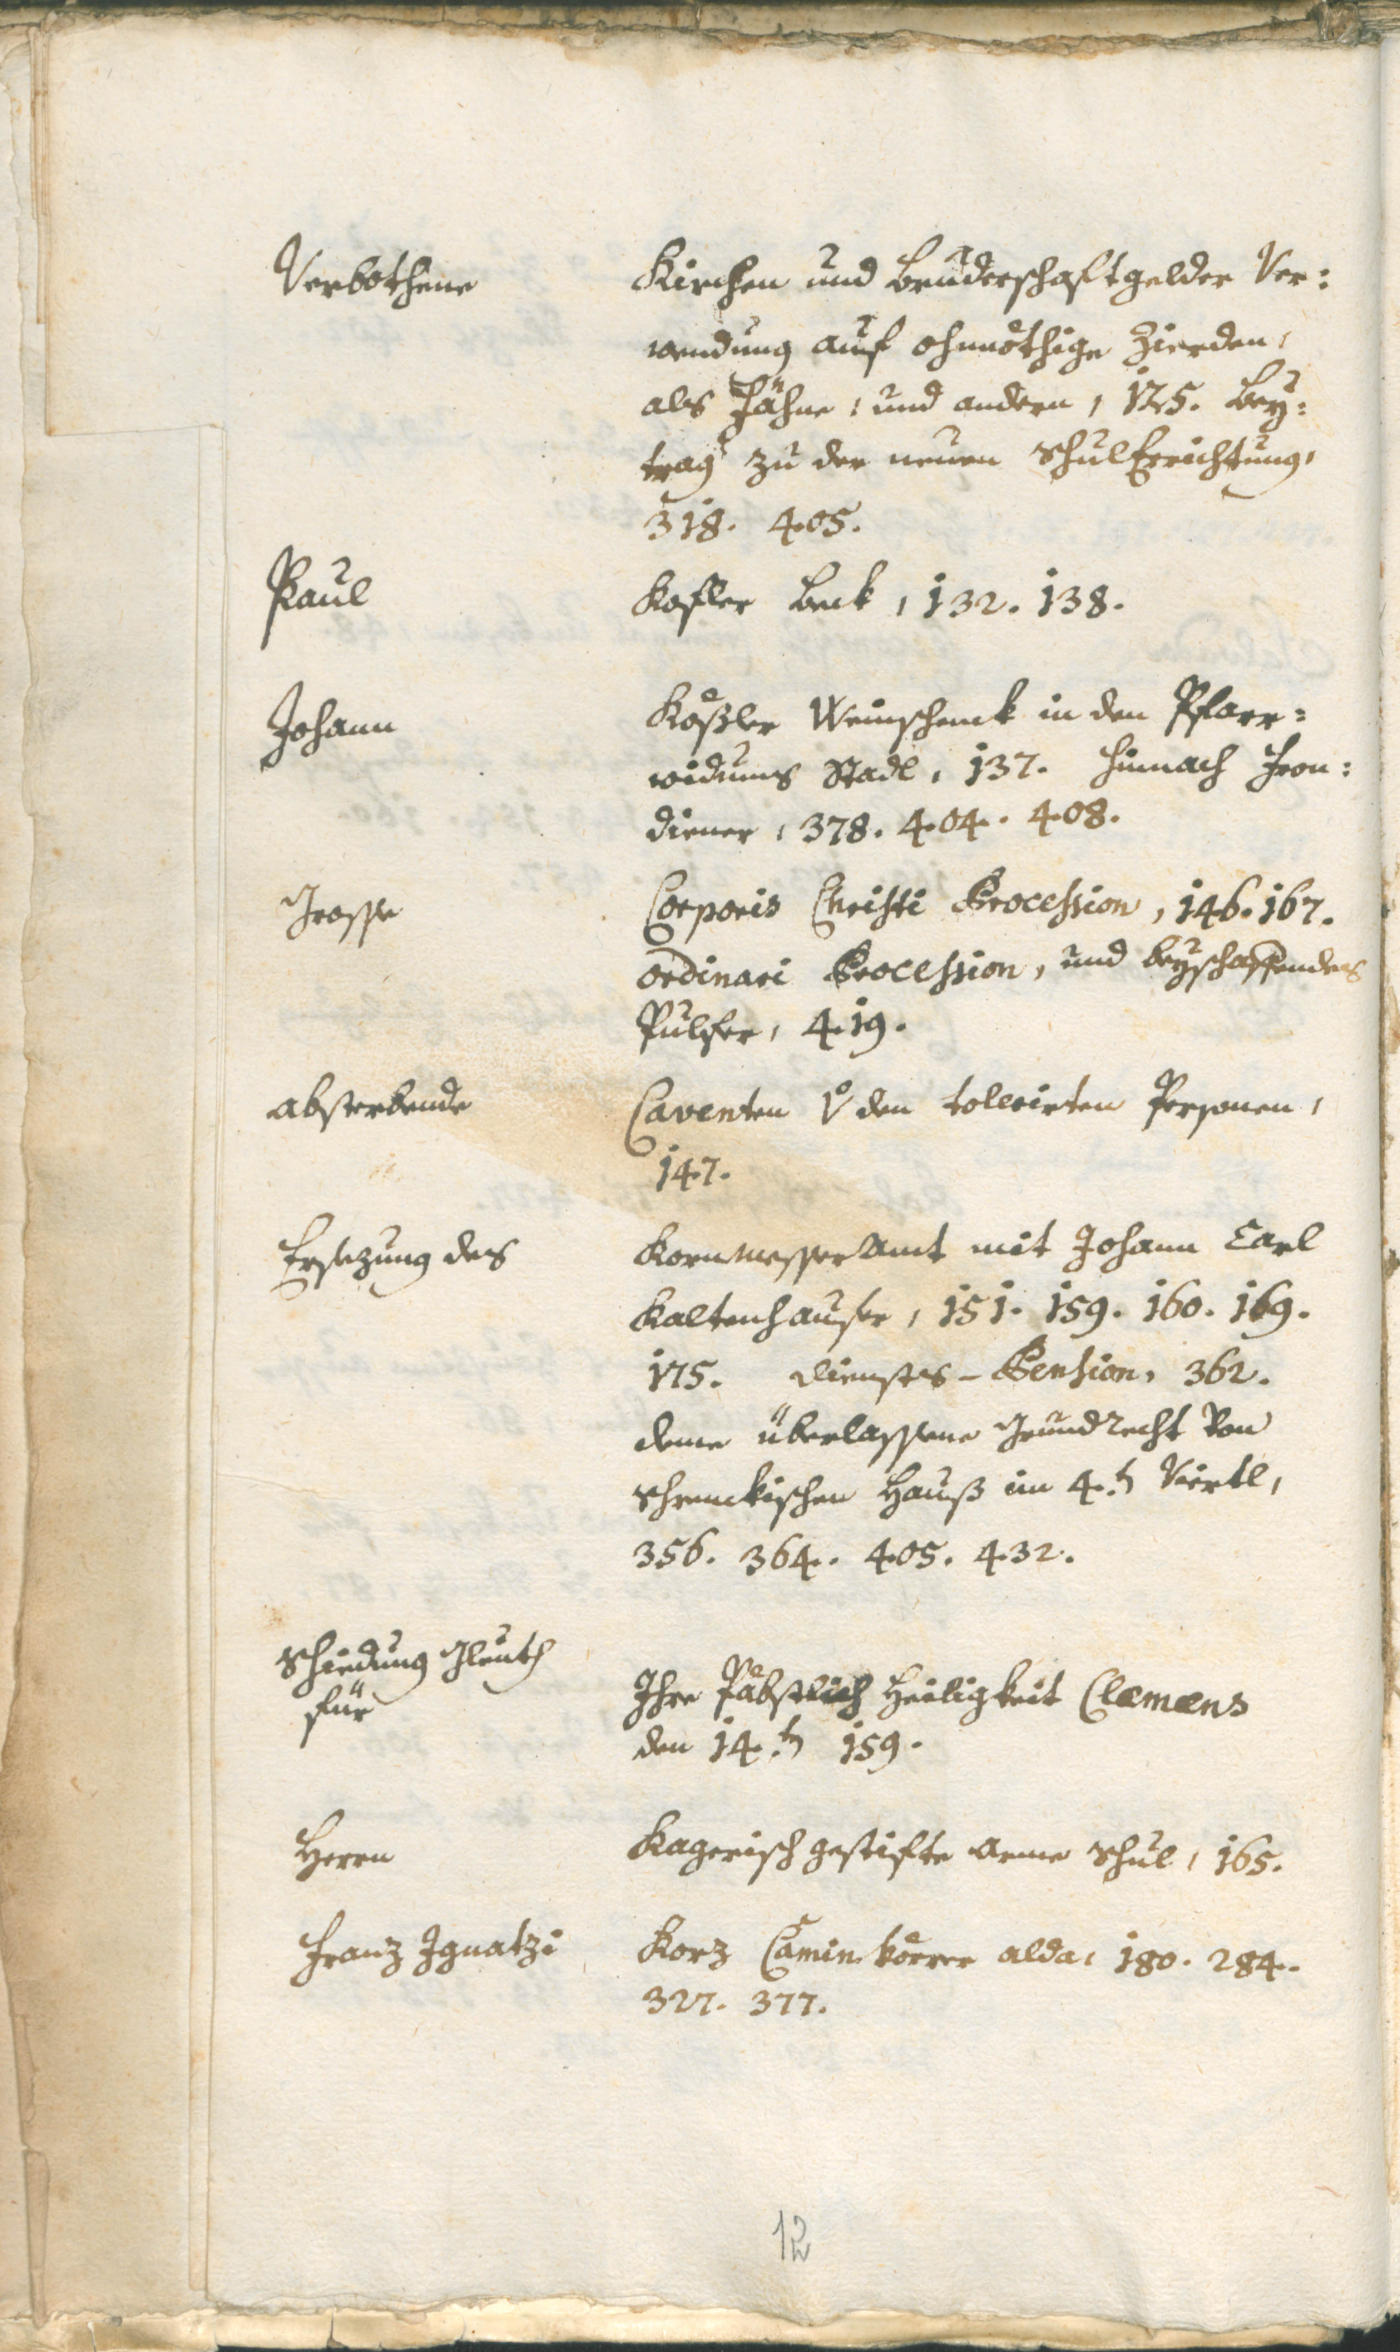 Verbothene Kirchen und Bruderschaftgelder Ver=
wendung auf ohnnöthige Zierden,
als Fähne, und andern, 125. Bey=
trag zu der neuen Schul Errichtung,
318. 405.
Paul Kofler Beck, 132. 138.
Johann Koßler Weinschenck in den Pfarr=
widums Stadl, 137. hinnach Fron=
diener, 378. 404. 408.
Grosse Corporis Christi Procession, 146. 167.
ordinari Procession, und beyschaffendes
Pulfer, 419.
absterbende Caventen V den tollerirten Personen,
147.
Ersezung des Kornmesser Amt mit Johann Carl
Kaltenhauser, 151. 159. 160. 169.
175. Diensts-Pension, 362.
deme überlassene Grundrecht von
Schrenckischen Hauß im 4.t Viertl,
356. 364. 405. 432.
Schiedung Gleuth
für Ihre Päbstlich Heiligkeit Clemens
den 14.t 159.
Herrn Kagerisch gestifte Arme Schul, 165.
Franz Ignatzi Korz Caminkörer alda, 180. 284.
327. 377.
12